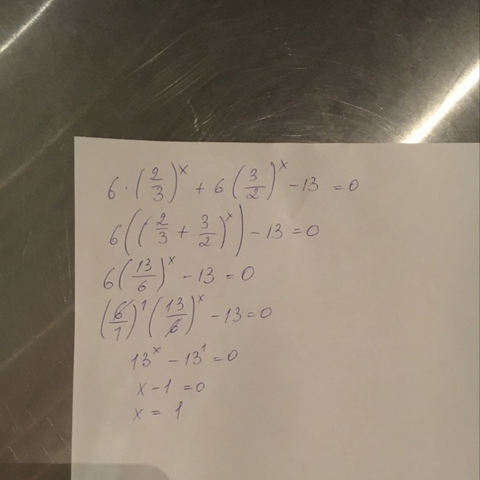 6 · (2/3)^x + 6 (3/2)^x - 13 = 0
6 ((2/3 + 3/2)^x) - 13 = 0
6 (13/6)^x - 13 = 0
(6/1)^1 (13/6)^x - 13 = 0
13^x - 13^1 = 0
x - 1 = 0
x = 1